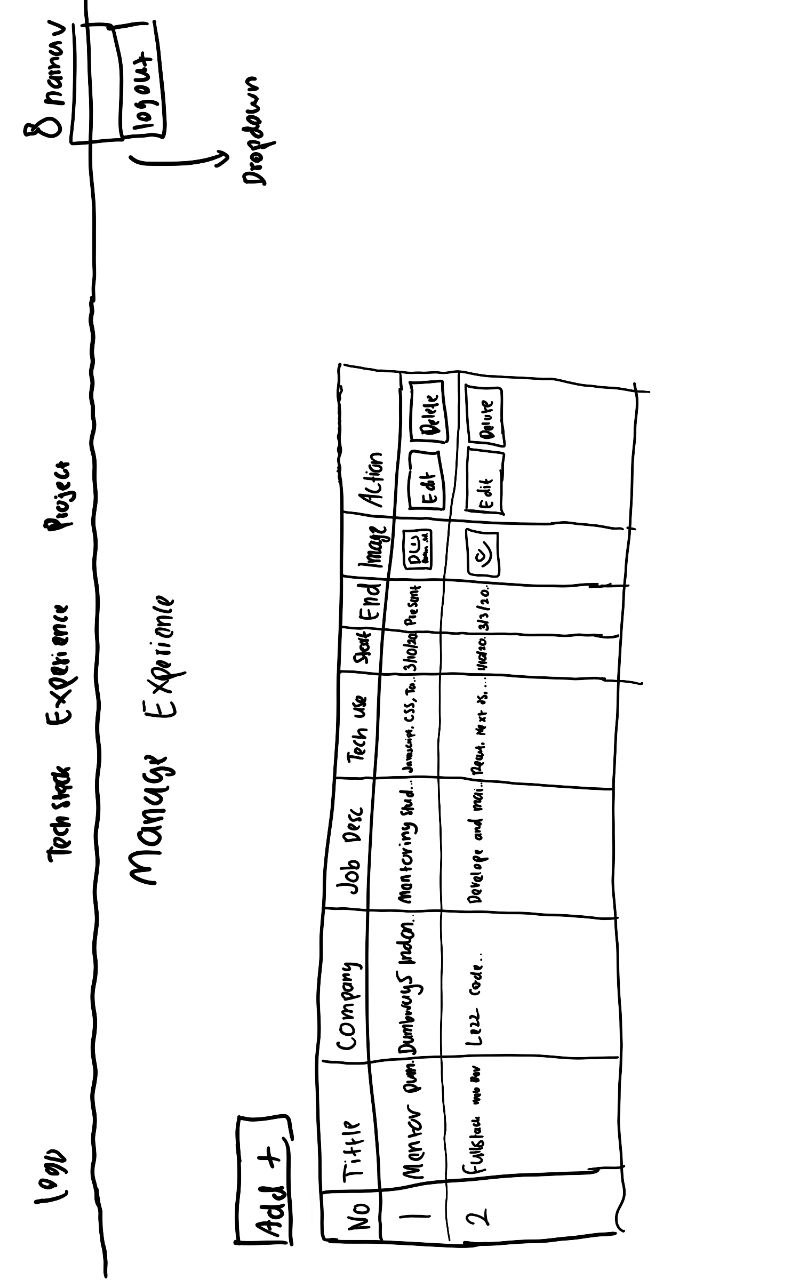 Logo Tech stack Experience Project nama v
logout
Dropdown
Manage Experience
Add +
No Tittle Company Job Desc Tech use Start End Image Action
1 Mentor Dum.. Dumbways Indon.. Mentoring stud.. Javascript, CSS, Ta.. 3/10/20 Present DW Edit Delete
2 Fullstack web dev Lezz code.. Develope and mai.. React, Next Js, ... 1/10/20.. 3/3/20.. Edit Delete